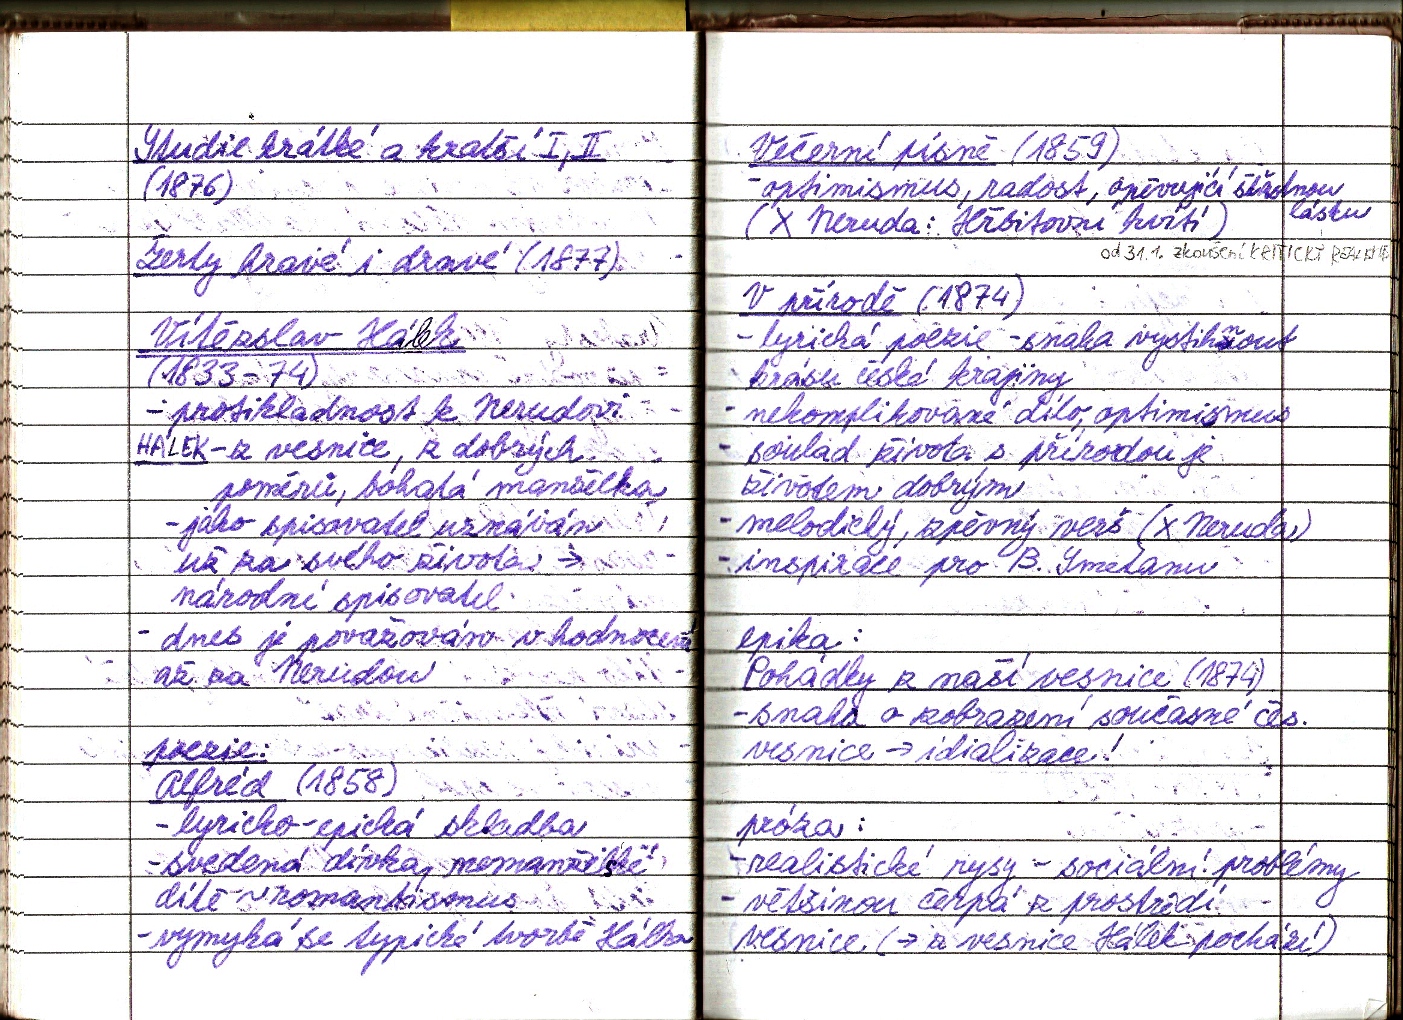 Studie krátké a kratší I, II
(1876)
Žerty hravé i dravé (1877)
Vítězslav Hálek
(1833-74)
- protikladnost k Nerudovi
HÁLEK - z vesnice, z dobrých
poměrů, bohatá manželka
- jako spisovatel uznáván
už za svého života →
národní spisovatel
- dnes je považován v hodnocení
až za Nerudou
poezie:
Alfréd (1858)
- lyricko-epická skladba
- svedená dívka, nemanželské
dítě ~ romantismus
- vymyká se typické tvorbě Hálka
Večerní písně (1859)
- optimismus, radost, opěvující šťastnou
lásku
(X Neruda: Hřbitovní kvítí)
od 31.1. zkoušení KRITICKÝ REALISMUS
V přírodě (1874)
- lyrická poezie - snaha vystihnout
krásu české krajiny
- nekomplikované dílo, optimismus
- soulad života s přírodou je
životem dobrým
- melodický, zpěvný verš (X Neruda)
- inspirace pro B. Smetanu
epika:
Pohádky z naší vesnice (1874)
- snaha o zobrazení současné čes.
vesnice → idializace!
próza:
- realistické rysy - sociální problémy
- většinou čerpá z prostředí
vesnice (→ z vesnice Hálek pochází)